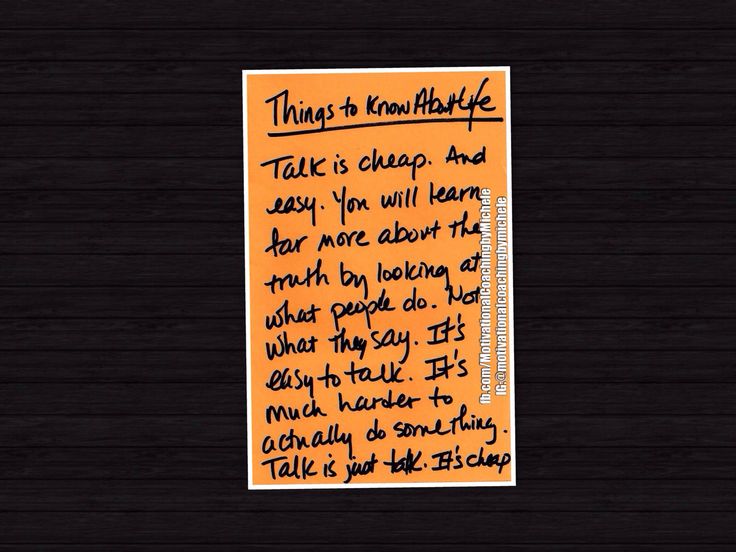 Things to Know About Life
Talk is cheap. And
easy. You will learn
far more about the
truth by looking at
what people do. Not
what they say. It's
easy to talk. It's
much harder to
actually do something.
Talk is just talk. It's cheap
fb.com/MotivationalCoachingbyMichele
IG:@motivationalcoachingbymichele